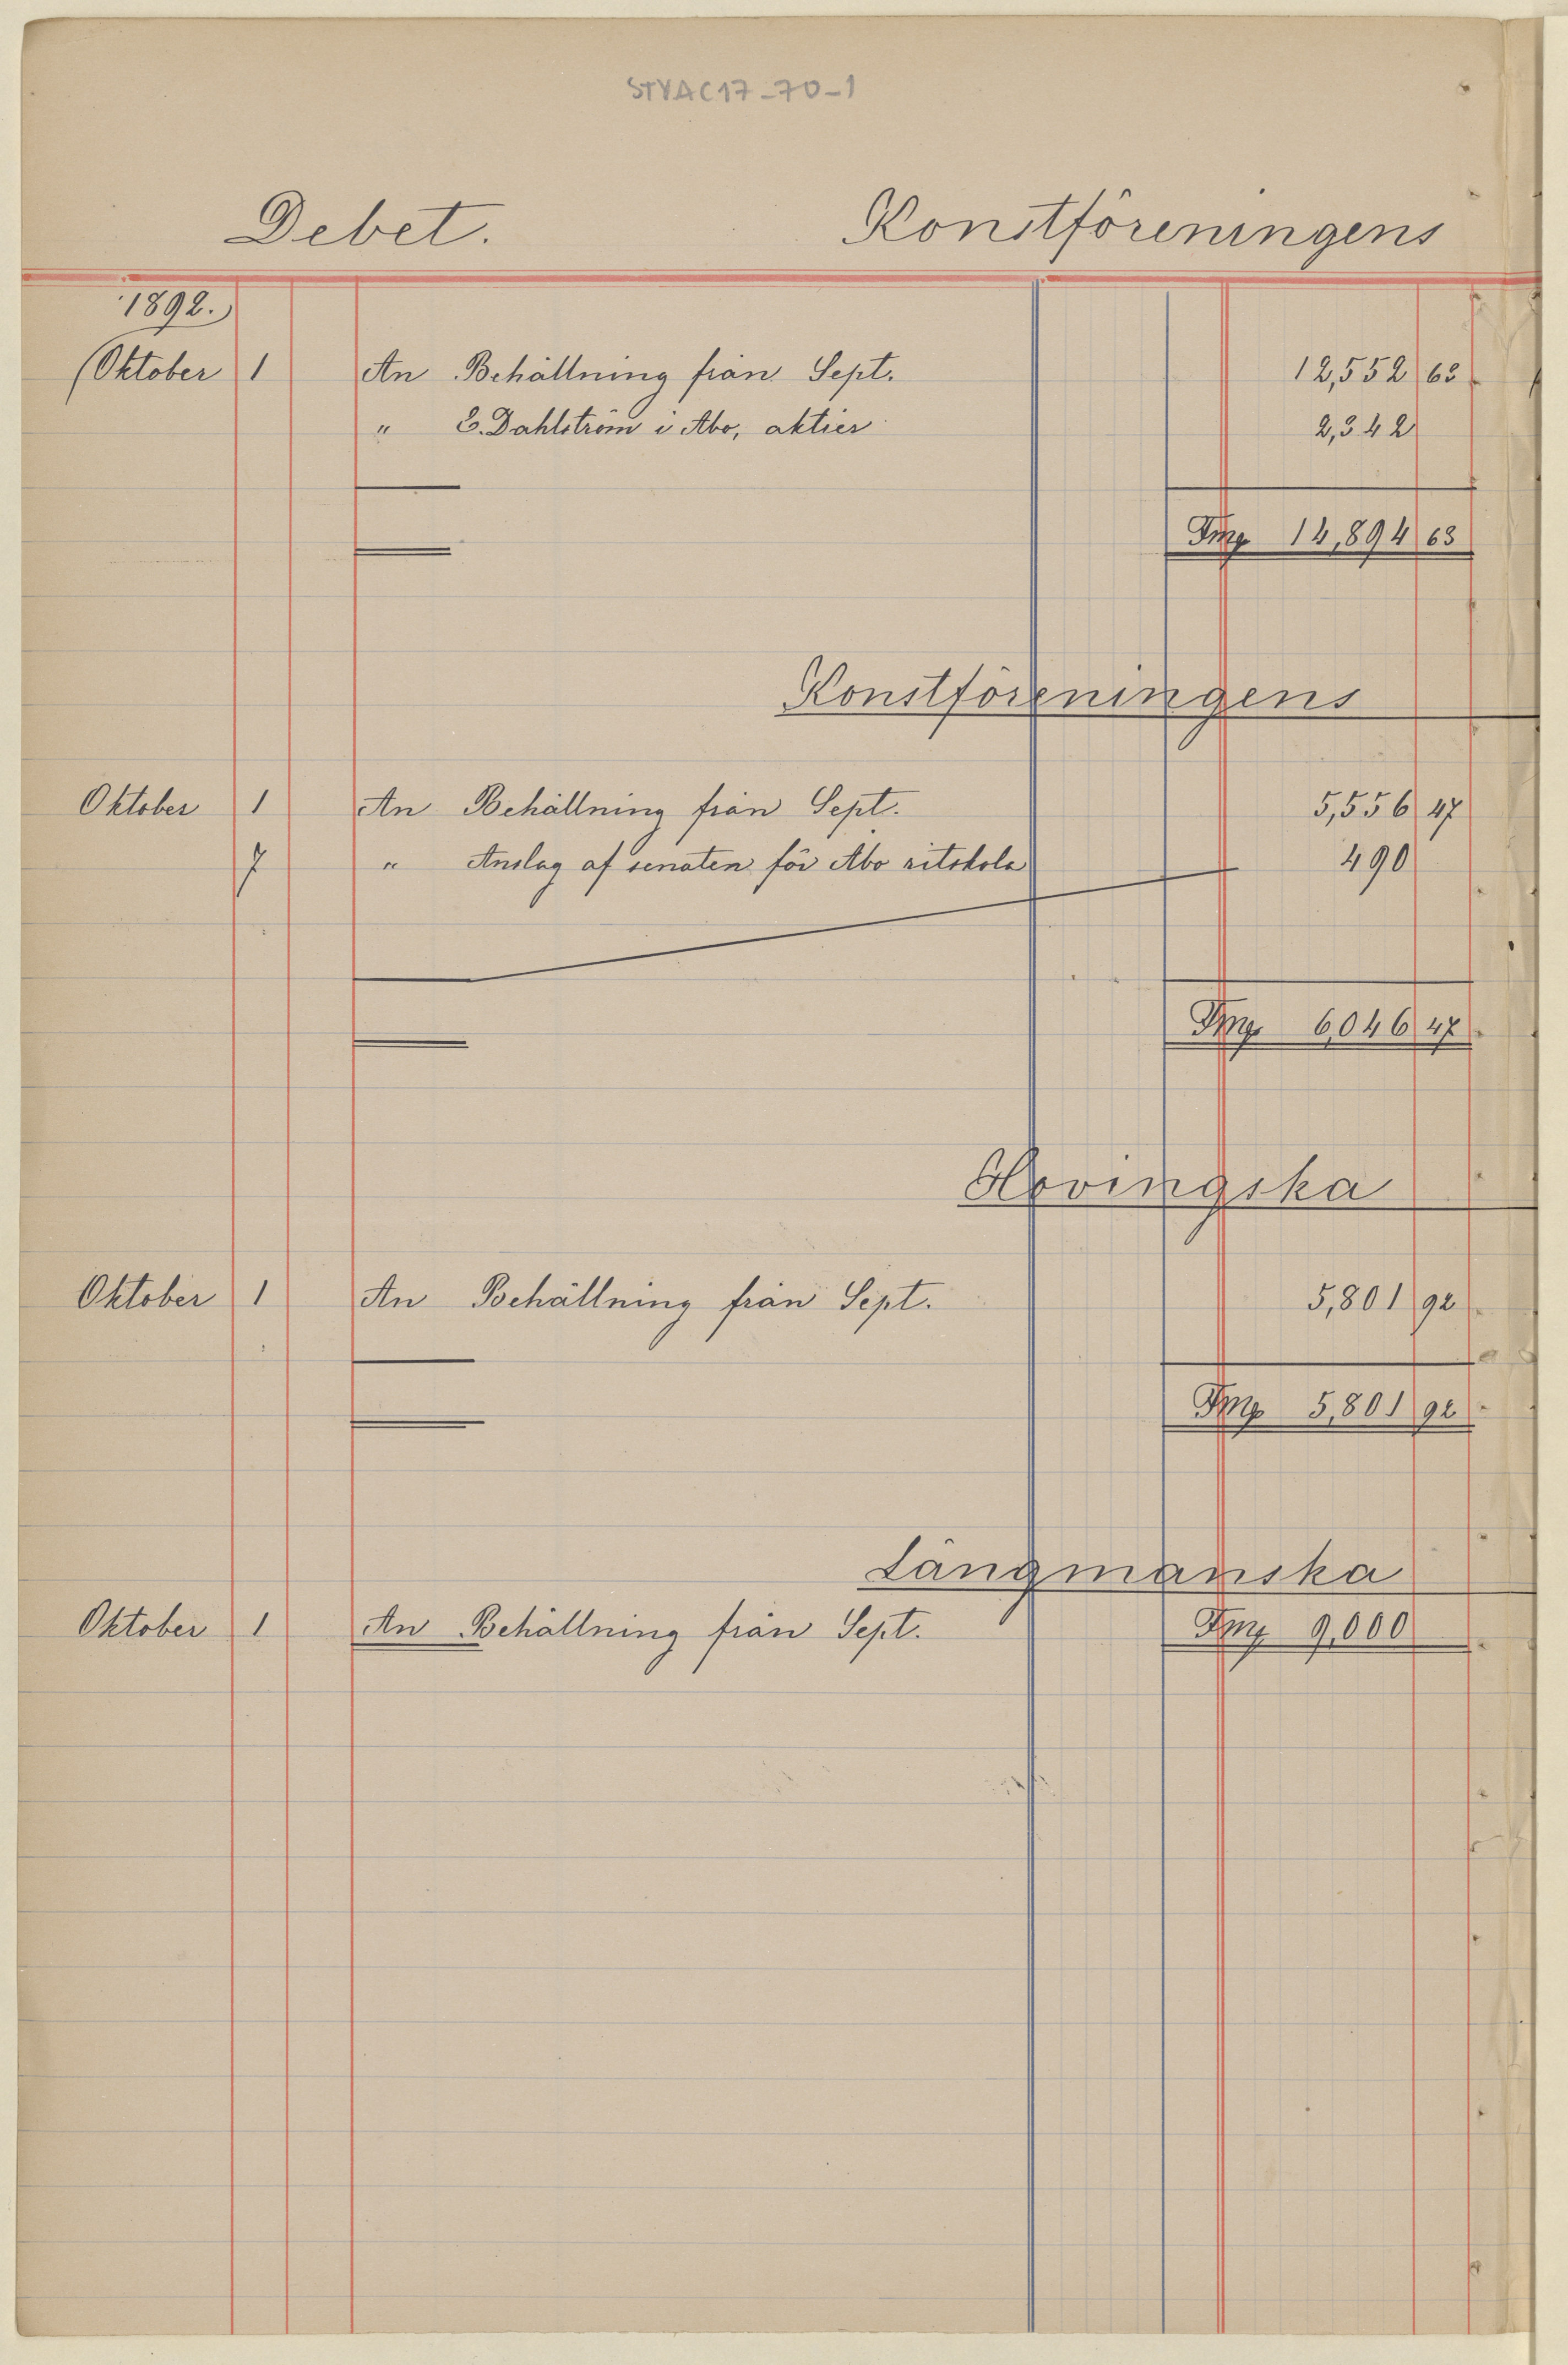 STYAC17-70-1
Debet. Konstföreningens
1892.
Oktober 1 An Behållning från Sept. 12,552 63
" E. Dahlström i Åbo, aktier 2,342
Fmg 14,894 63
Konstföreningens
Oktober 1 An Behållning från Sept. 5,556 47
7 " Anslag af senaten för Åbo ritskola 490
Fmg 6,046 47
Hovingska
Oktober 1 An Behållning från Sept. 5,801 92
Fmg 5,801 92
Längmanska
Oktober 1 An Behållning från Sept. Fmg 9,000